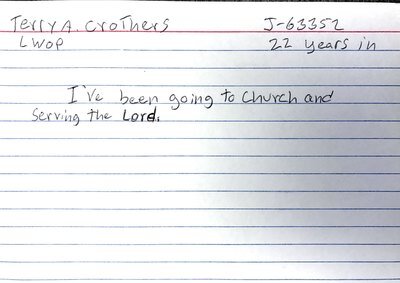 Terry A. Crothers J-63352
LWOP 22 years in
I've been going to Church and
Serving the Lord.